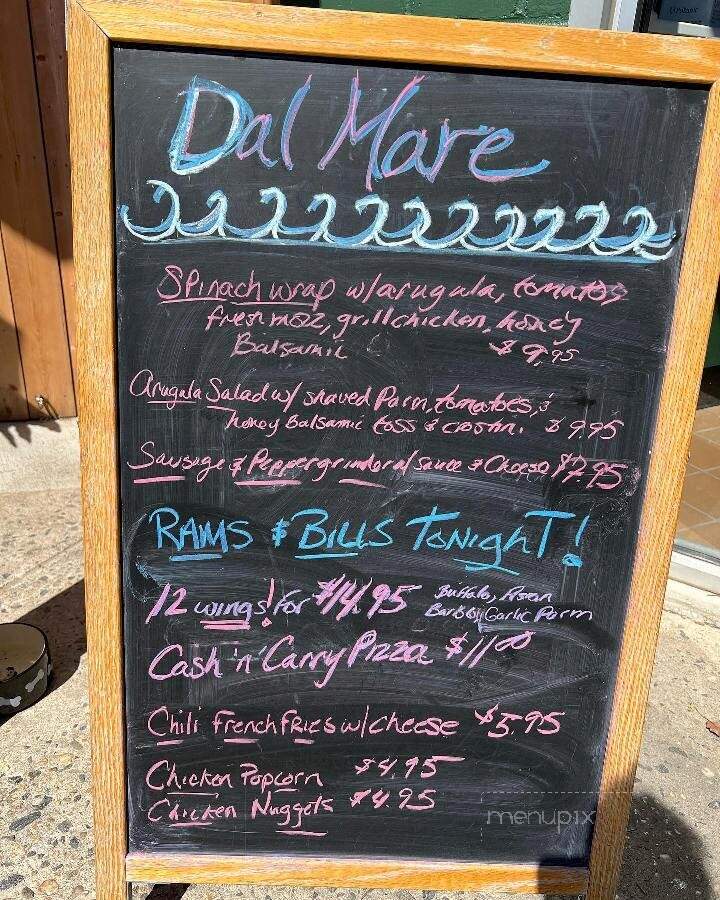 Dal Mare
Spinach wrap w/arugula, tomatos
fresh mozz, grill chicken, honey
Balsamic $9.95
Arugula Salad w/ shaved Parm, tomatoes, &
honey Balsamic toss & crostin. $9.95
Sausage & Pepper grinder w/ sauce & Cheese $7.95
RAMS & BILLS TONIGHT!
12 wings! For $14.95 Buffalo, Asian
BarBQ, Garlic Parm
Cash 'n' Carry Pizza $11.00
Chili French Fries w/cheese $5.95
Chicken Popcorn $4.95
Chicken Nuggets $4.95
menupix